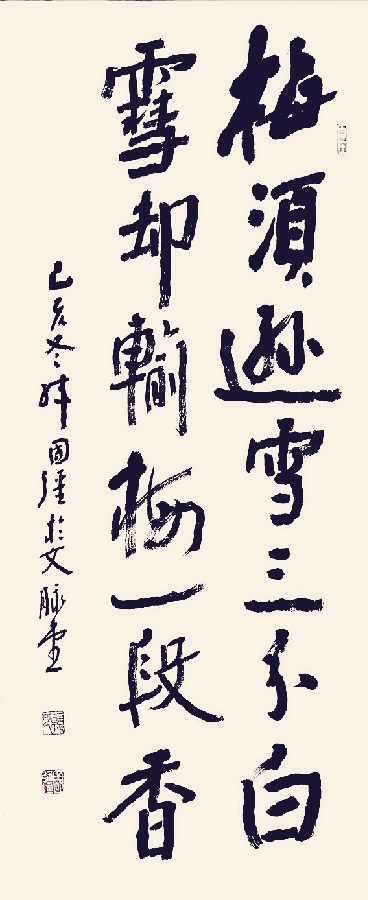 梅須遜雪三分白
雪却輸梅一段香
己亥冬 國 於文脉堂